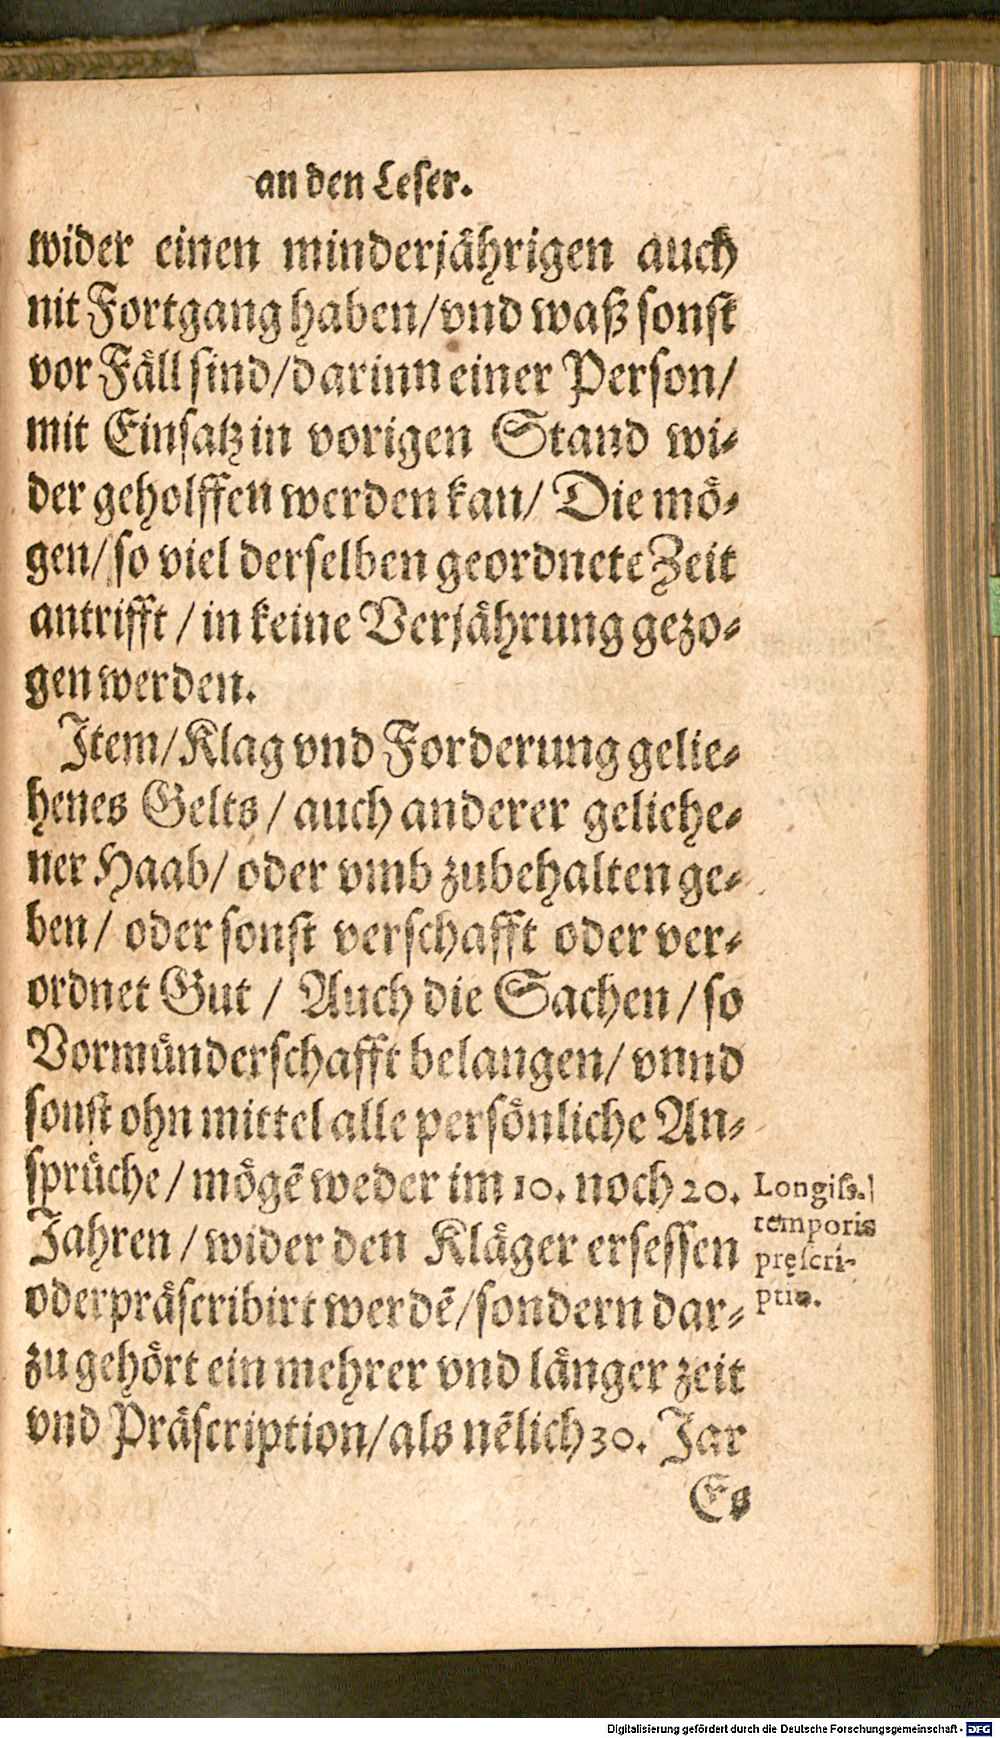 an den Leser.
wider einen minderjährigen auch
nit Fortgang haben/vnd waß sonst
vor Fäll sind/darinn einer Person/
mit Einsatz in vorigen Stand wi-
der geholffen werden kan/ Die mö-
gen/ so viel derselben geordnete Zeit
antrifft / in keine Verjährung gezo-
gen werden.
Item/Klag vnd Forderung gelie-
henes Gelts / auch anderer geliehe-
ner Haab/ oder vmb zubehalten ge-
ben/ oder sonst verschafft oder ver-
ordnet Gut / Auch die Sachen / so
Vormünderschafft belangen/ vnnd
sonst ohn mittel alle persönliche An-
sprüche / mögẽ weder im 10. noch 20.
Jahren / wider den Kläger ersessen
oder präscribirt werdẽ/sondern dar-
zu gehört ein mehrer vnd länger zeit
vnd Präscription/als nẽlich 30. Jar
Es
Longiss.
temporis
pręscri-
ptio.
Digitalisierung gefördert durch die Deutsche Forschungsgemeinschaft - DFG